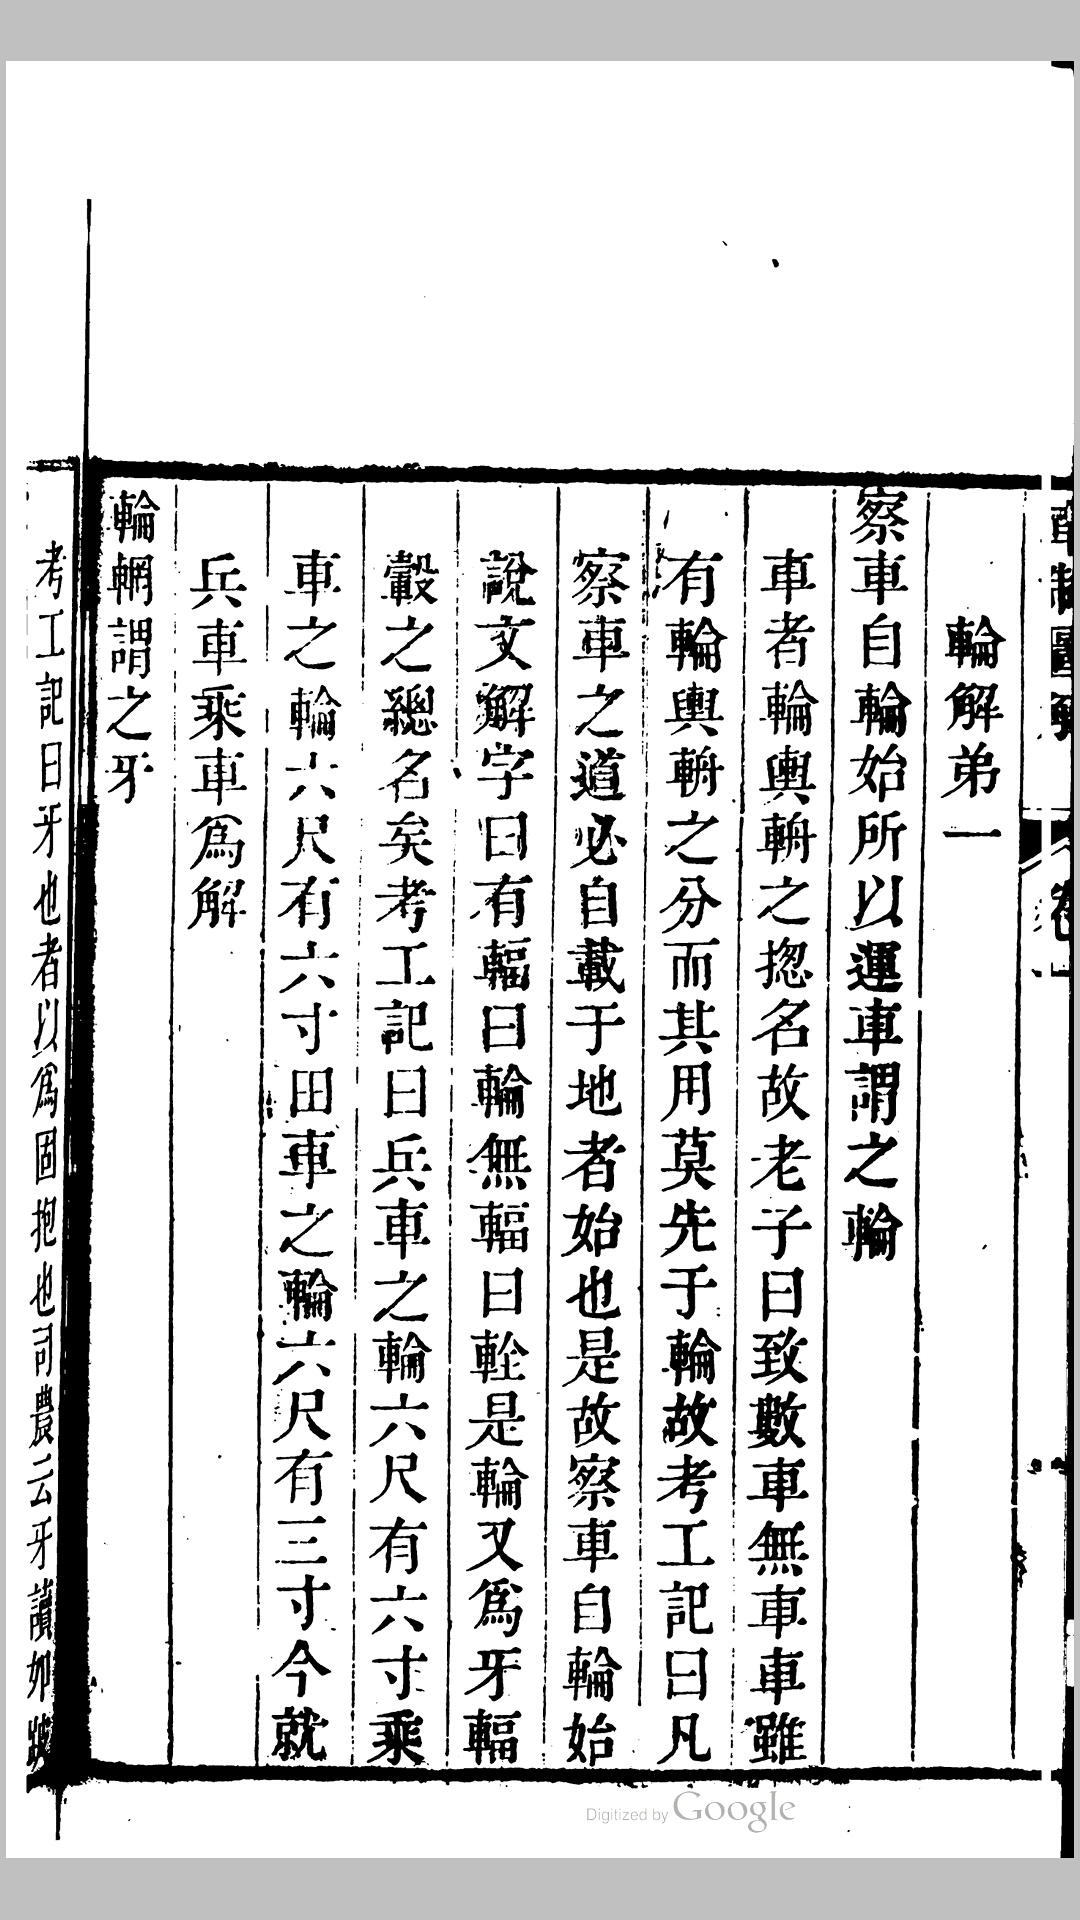 輪解弟一
察車自輪始所以運車謂之輪
車者輪輿輈之揔名故老子曰致數車無車車雖
有輪輿輈之分而其用莫先于輪故考工記曰凡
察車之道必自載于地者始也是故察車自輪始
說文解字曰有輻曰輪無輻曰輇是輪又爲牙輻
轂之總名矣考工記曰兵車之輪六尺有六寸乘
車之輪六尺有六寸田車之輪六尺有三寸今就
兵車乘車爲解
輪輞謂之牙
考工記曰牙也者以爲固抱也司農云牙讀如跛
Digitized by Google